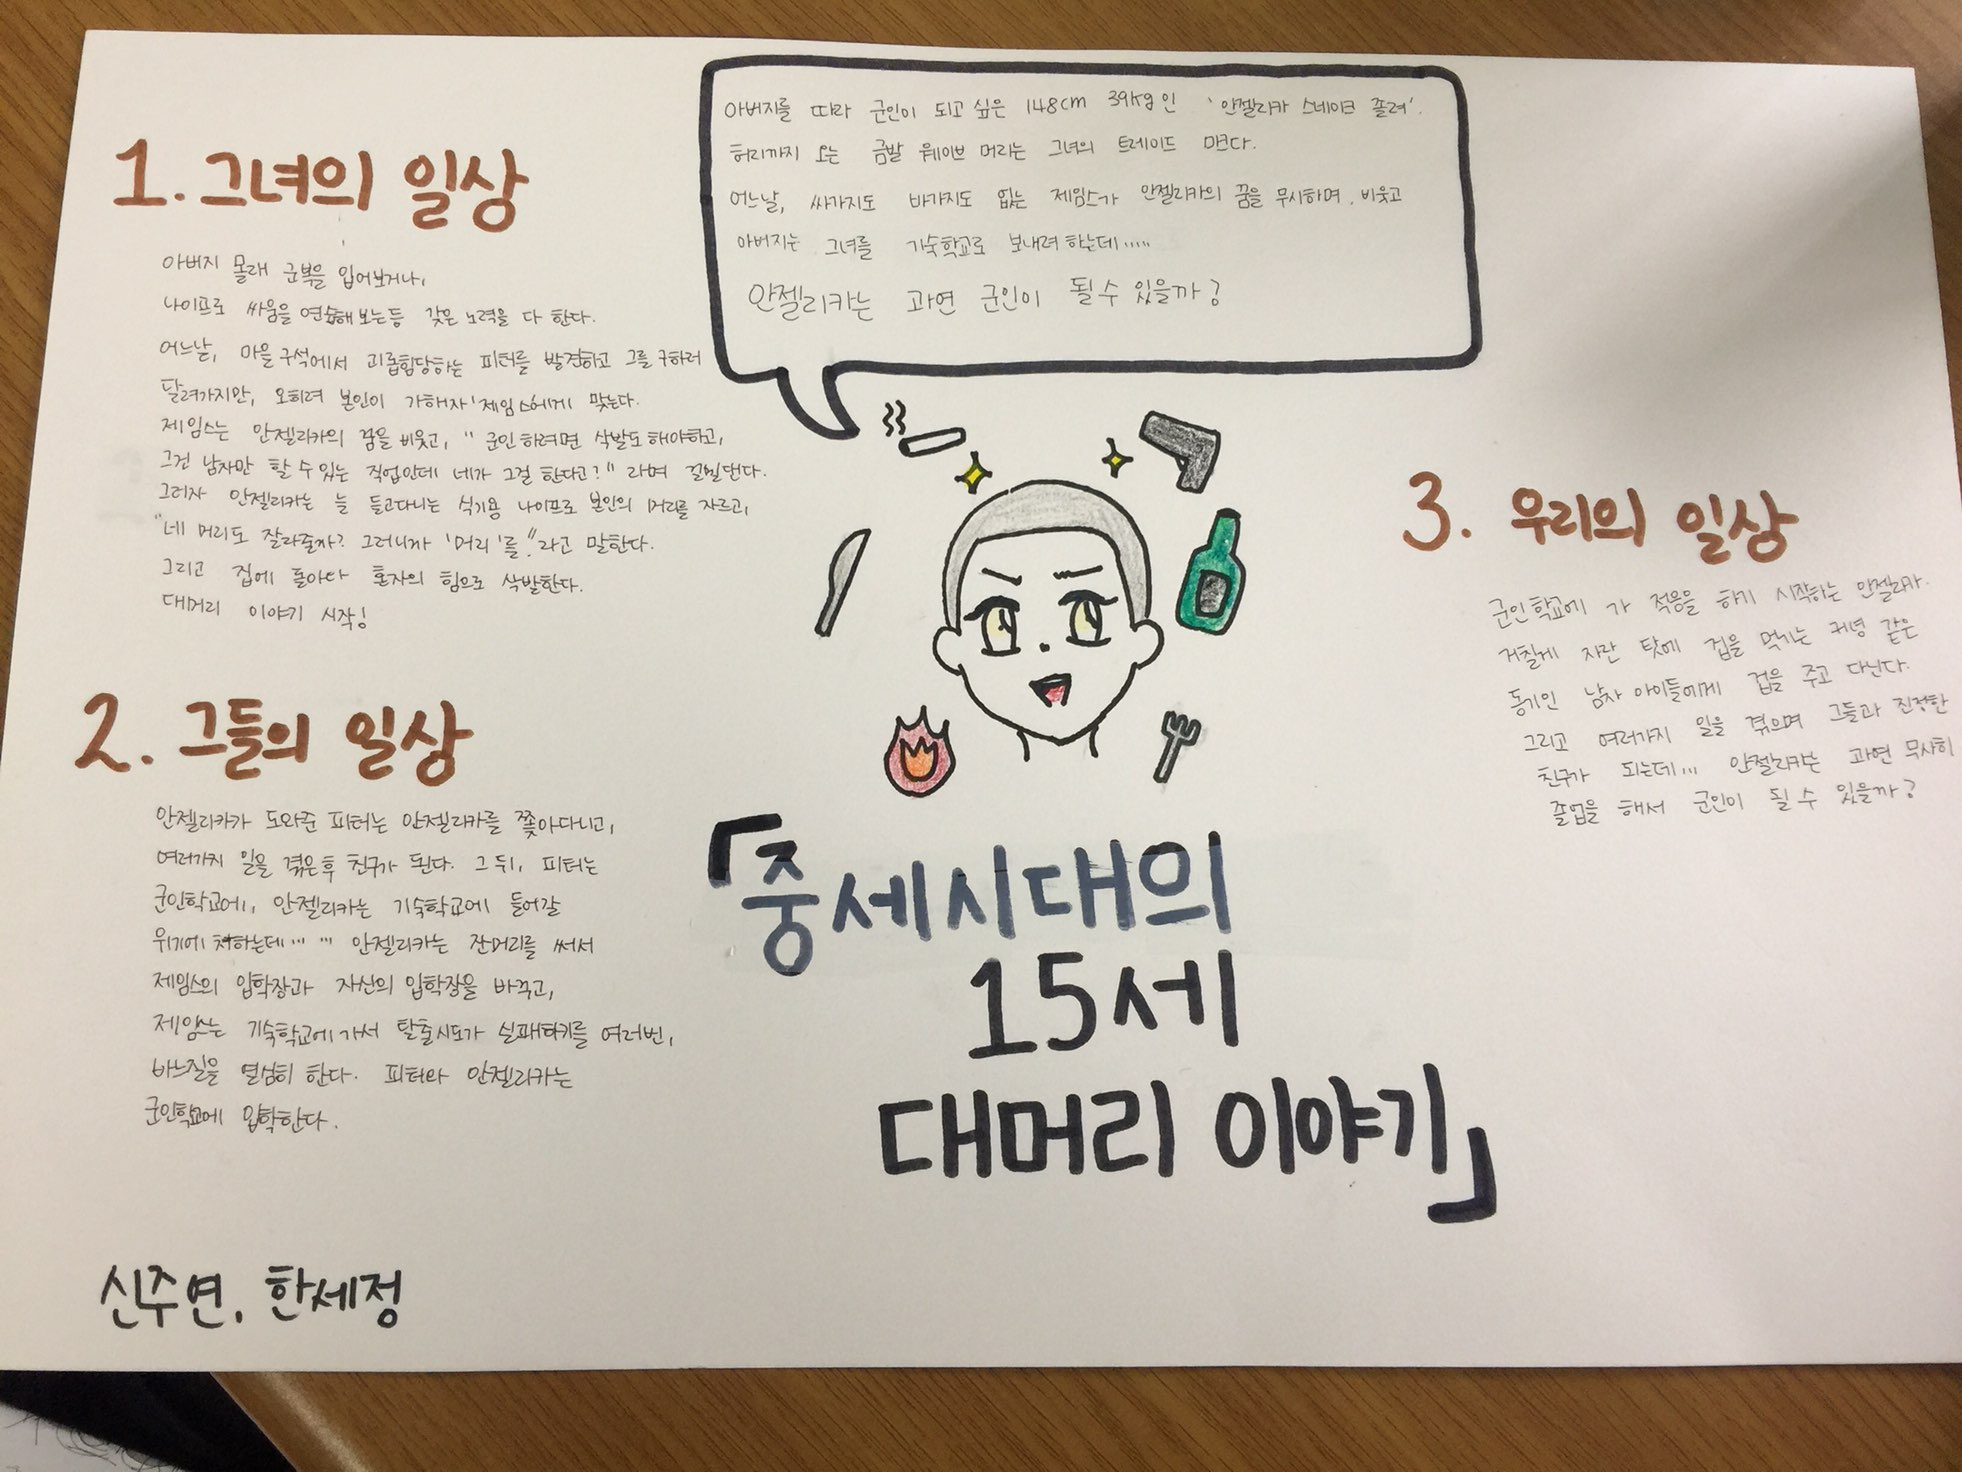 아버지를 따라 군인이 되고 싶은 148cm 39kg인 '안젤리카 스네이크 졸려'.
허리까지 오는 금발 웨이브 머리는 그녀의 트레이드 마크다.
어느날, 싸가지도 바가지도 없는 제임스가 안젤리카의 꿈을 무시하며, 비웃고
아버지는 그녀를 기숙학교로 보내려 하는데.....
안젤리카는 과연 군인이 될 수 있을까?
1. 그녀의 일상
아버지 몰래 군복을 입어보거나,
나이프로 싸움을 연습해 보는 등 갖은 노력을 다 한다.
어느날, 마을 구석에서 괴롭힘당하는 피터를 발견하고 그를 구하러
달려가지만, 오히려 본인이 가해자 '제임스'에게 맞는다.
제임스는 안젤리카의 꿈을 비웃고, "군인 하려면 삭발도 해야하고,
그건 남자만 할 수 있는 직업인데 네가 그걸 한다고?" 라며 걸빌댄다.
그러자 안젤리카는 늘 들고다니는 식기용 나이프로 본인의 머리를 자르고,
"네 머리도 잘라줄까? 그러니까 '머리'를!" 라고 말한다.
그리고 집에 돌아다 혼자의 힘으로 삭발한다.
대머리 이야기 시작!
2. 그들의 일상
안젤리카가 도와준 피터는 안젤리카를 쫓아다니고,
여러가지 일을 겪은 후 친구가 된다. 그 뒤, 피터는
군인학교에, 안젤리카는 기숙학교에 들어갈
위기에 처하는데... ... 안젤리카는 잔머리를 써서
제임스의 입학장과 자신의 입학장을 바꾸고,
제임스는 기숙학교에 가서 탈출시도가 실패하기를 여러번,
바느질을 열심히 한다. 피터와 안젤리카는
군인학교에 입학한다.
3. 우리의 일상
군인학교에 가 적응을 하기 시작하는 안젤리카.
거칠게 자란 탓에 겁을 먹기는 커녕 같은
동기인 남자 아이들에게 겁을 주고 다닌다.
그리고 여러가지 일을 겪으며 그들과 진정한
친구가 되는데... 안젤리카는 과연 무사히
졸업을 해서 군인이 될 수 있을까?
「중세시대의
15세
대머리 이야기」
신주연, 한세정